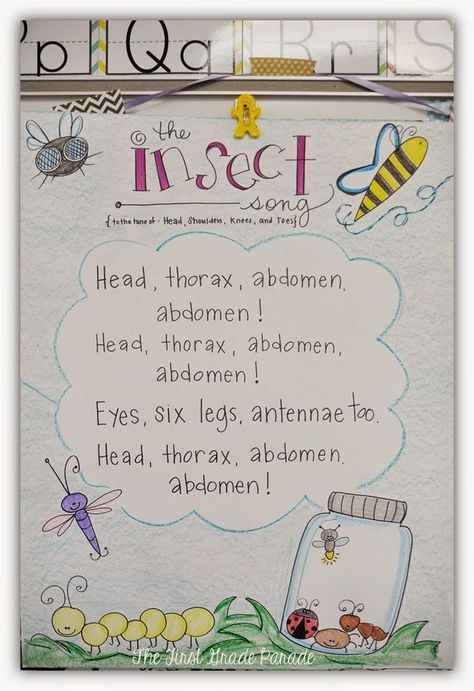 Pp Qq Rr S
the
insect
song
{to the tune of: Head, Shoulders, Knees, and Toes}
Head, thorax, abdomen,
abdomen!
Head, thorax, abdomen,
abdomen!
Eyes, six legs, antennae too.
Head, thorax, abdomen.
abdomen!
The First Grade Parade